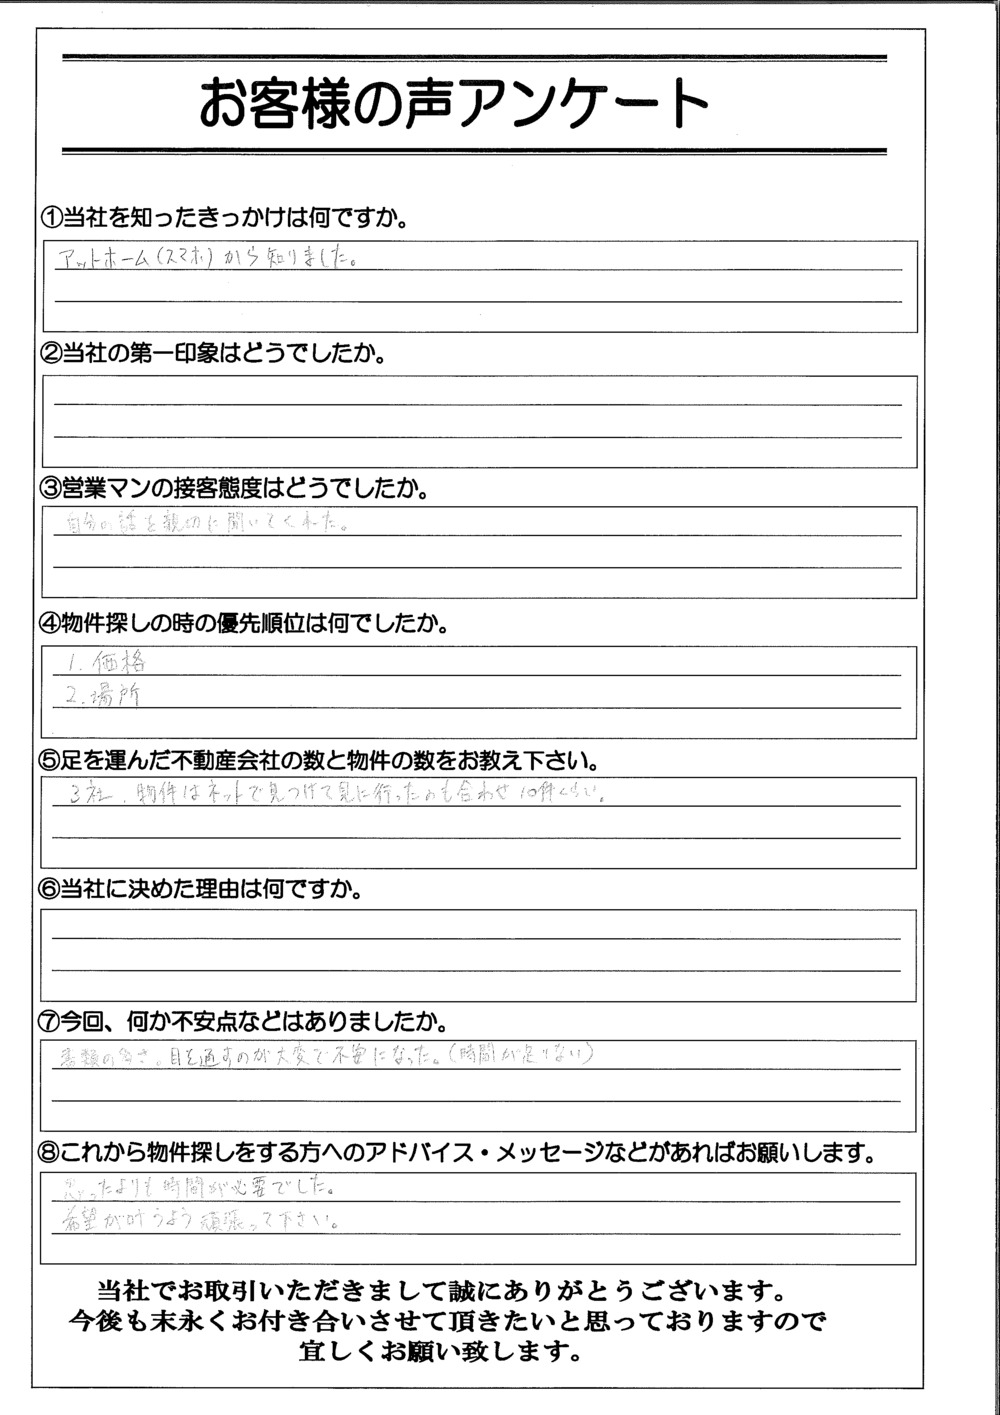 お客様の声アンケート
①当社を知ったきっかけは何ですか。
アットホーム(スマホ)から知りました。
②当社の第一印象はどうでしたか。
③営業マンの接客態度はどうでしたか。
自分の話を親切に聞いてくれた。
④物件探しの時の優先順位は何でしたか。
1. 価格
2. 場所
⑤足を運んだ不動産会社の数と物件の数をお教え下さい。
3社、物件はネットで見つけて見に行ったのも合わせ10件くらい。
⑥当社に決めた理由は何ですか。
⑦今回、何か不安点などはありましたか。
書類の多さ。目を通すのが大変で不安になった。(時間が足りない)
⑧これから物件探しをする方へのアドバイス・メッセージなどがあればお願いします。
思ったよりも時間が必要でした。
希望が叶うよう頑張って下さい。
当社でお取引いただきまして誠にありがとうございます。
今後も末永くお付き合いさせて頂きたいと思っておりますので
宜しくお願い致します。